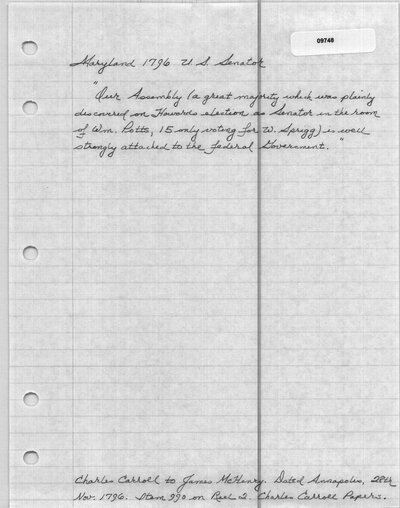 09748
Maryland 1796 U.S. Senator
"Our Assembly (a great majority which was plainly
discovered on Howards election as Senator in the room
of Wm. Potts, 15 only voting for W. Sprigg) is well
strongly attached to the Federal Government."
Charles Carroll to James McHenry. Dated Annapolis, 28th
Nov. 1796. Item 990 on Reel 2. Charles Carroll Papers.